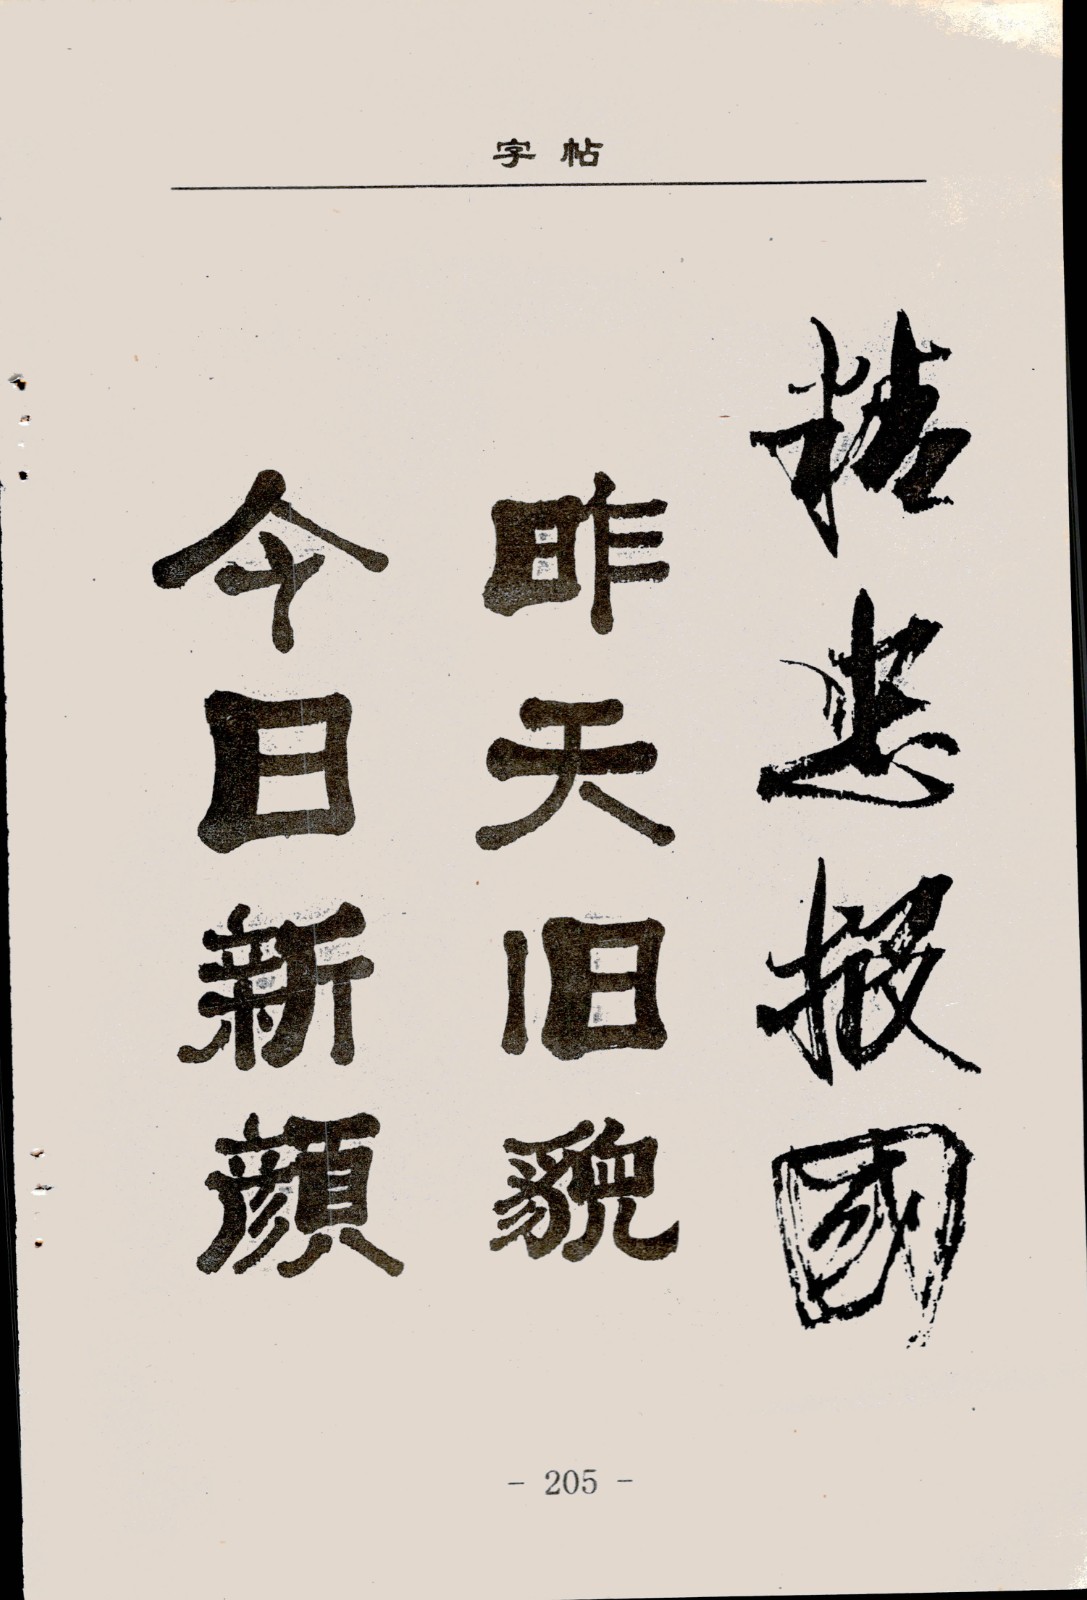 字帖
精忠报國
昨天旧貌
今日新顔
- 205 -